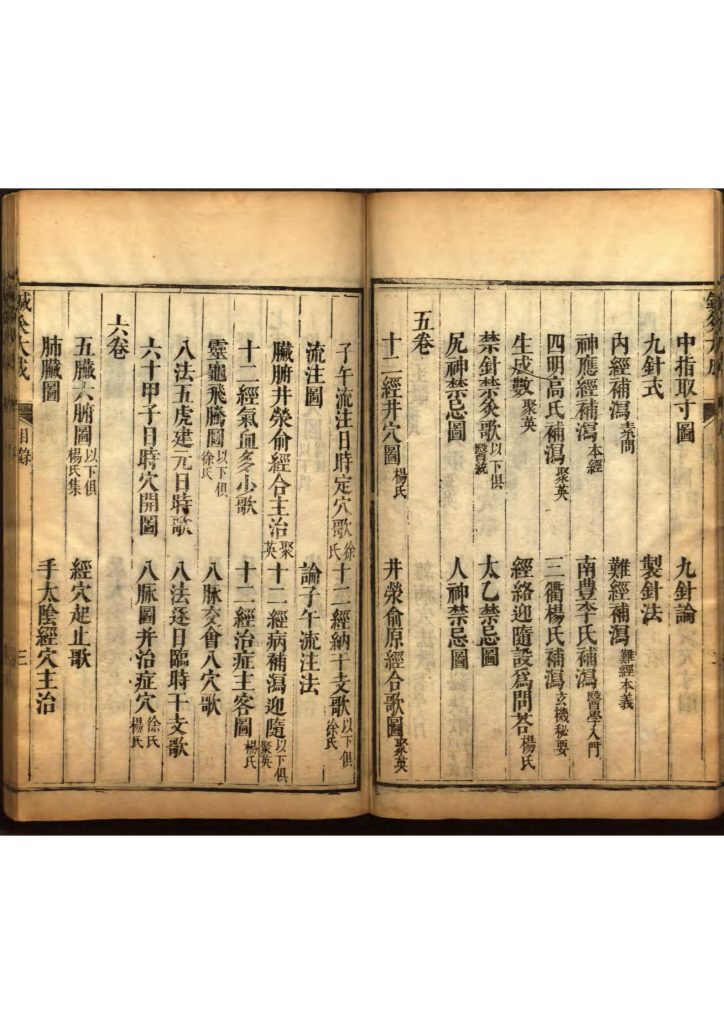 中指取寸圖 九針論
九針式 製針法
內經補瀉 素問 難經補瀉 難經本義
神應經補瀉 本經 南豊李氏補瀉 醫學入門
四明高氏補瀉 聚英 三衢楊氏補瀉 玄機秘要
生成數 聚英 經絡迎隨設爲問答 楊氏
禁針禁灸歌 以下俱醫統 太乙禁忌圖
尻神禁忌圖 人神禁忌圖
五卷
十二經井穴圖 楊氏 井滎俞原經合歌圖 聚英
子午流注日時定穴歌 徐氏 十二經納干支歌 以下俱徐氏
流注圖 論子午流注法
臟腑井滎俞經合主治 聚英 十二經病補瀉迎隨 以下俱聚英
十二經氣血多少歌 十二經治症主客圖 楊氏
靈龜飛騰圖 以下俱徐氏 八脉交會八穴歌
八法五虎建元日時歌 八法逐日臨時干支歌
六十甲子日時穴開圖 八脉圖并治症穴 徐氏楊氏
六卷
五臟六腑圖 以下俱楊氏集 經穴起止歌
肺臟圖 手太陰經穴主治
鍼灸大成 目錄 三